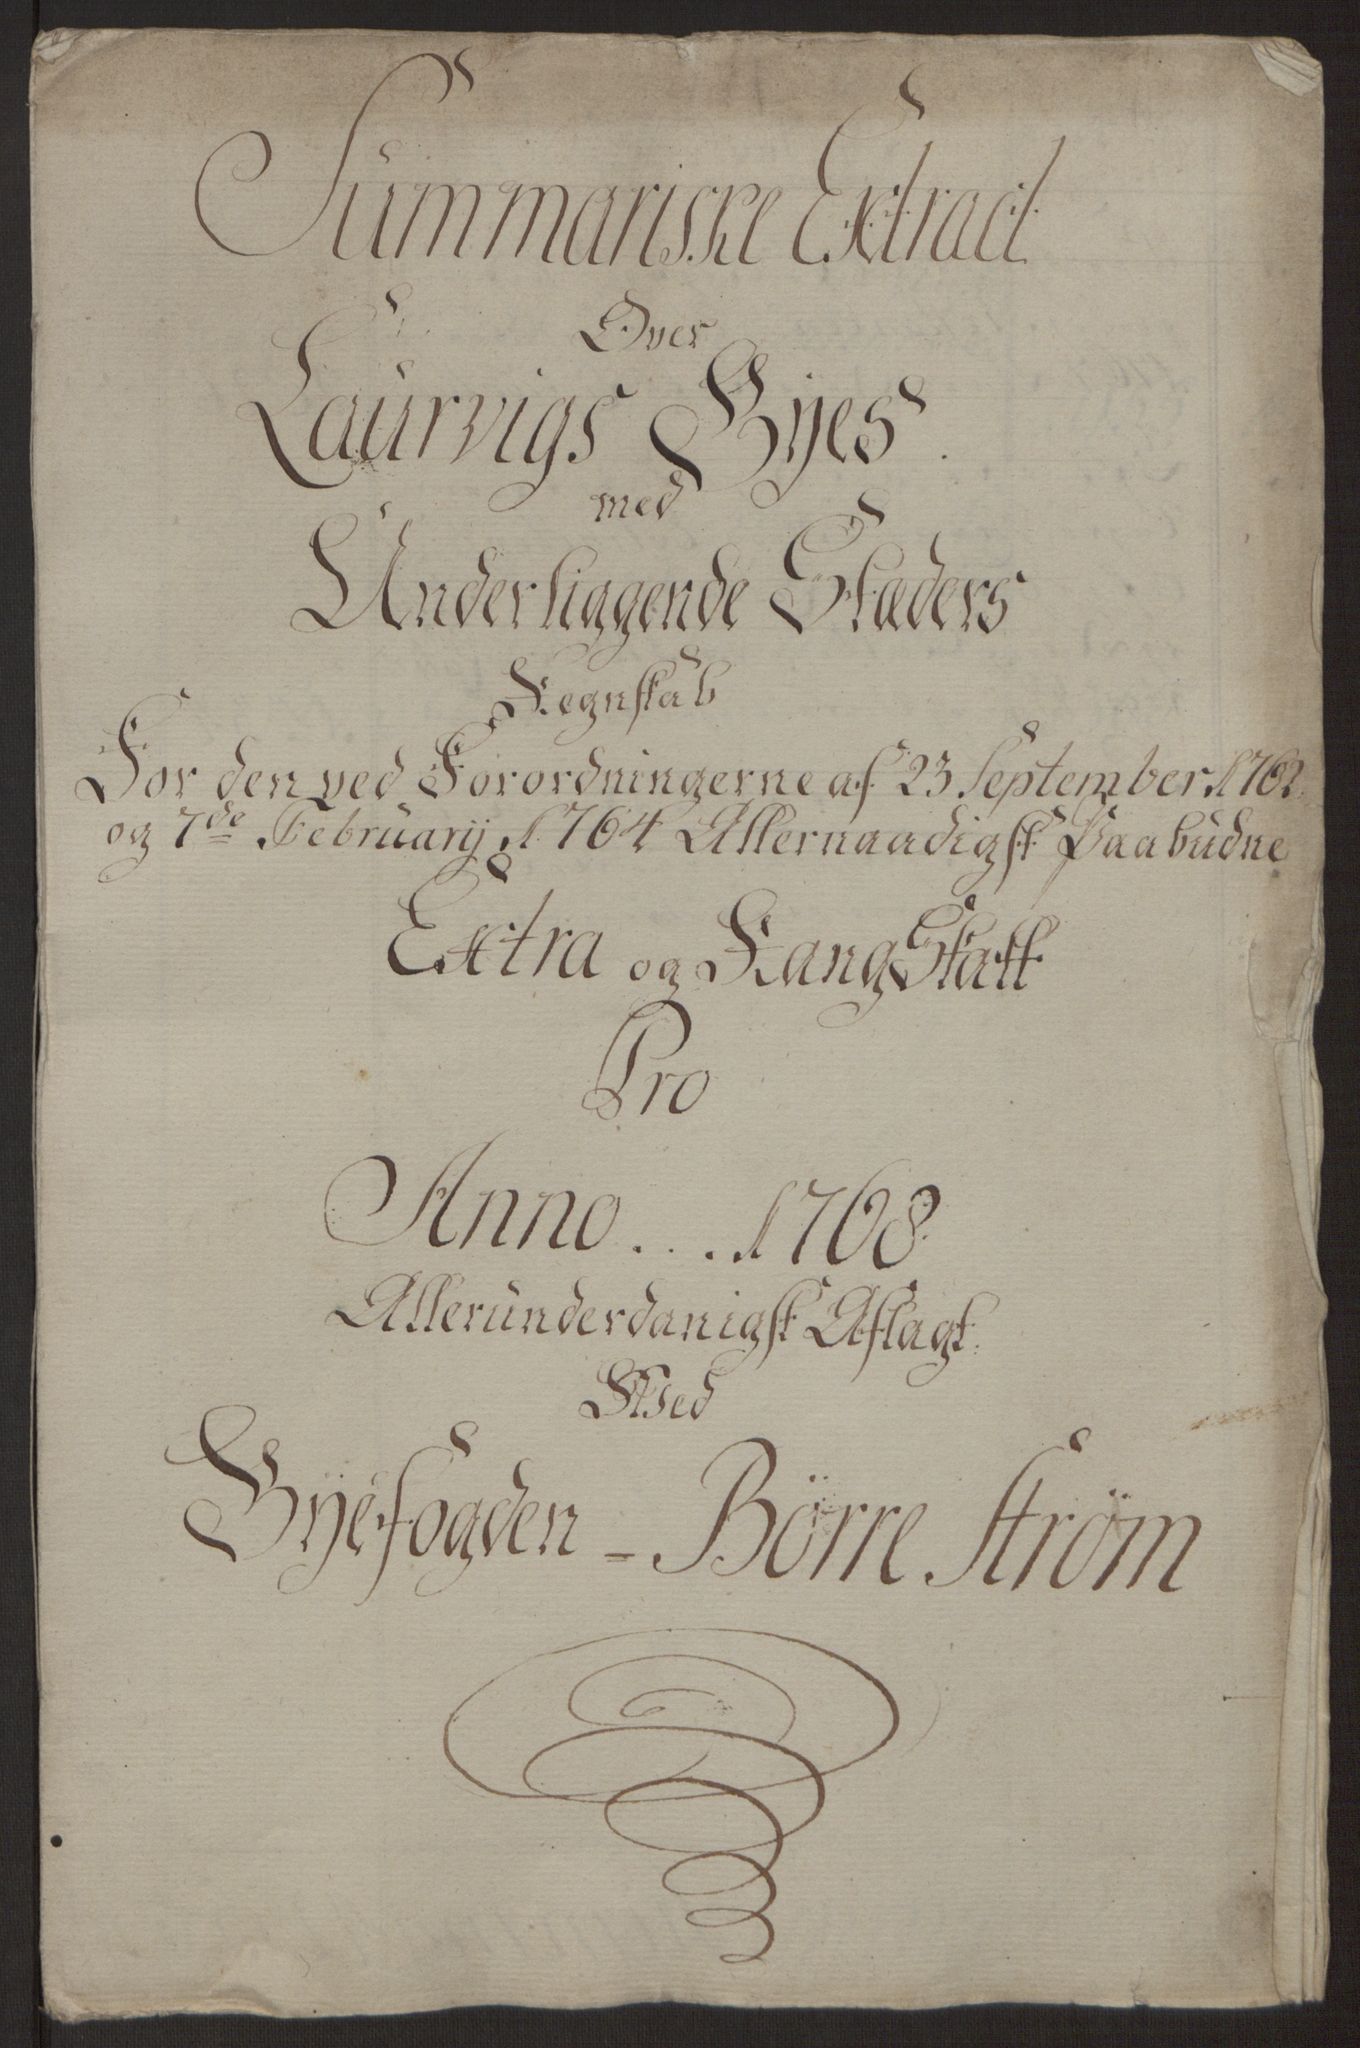 Summariske Extract
Over
Laurvigs Byes.
med
Underliggende Stæders
Regnskab
For den ved Forordningerne af 23 September 1762.
og 7de February 1764 Allernaadigst Paabudne
Extra og Rang Skatt
Pro
Anno . . . 1768.
Allerunderdanigst Aflagt.
Med
Byefogden - Börre Ström